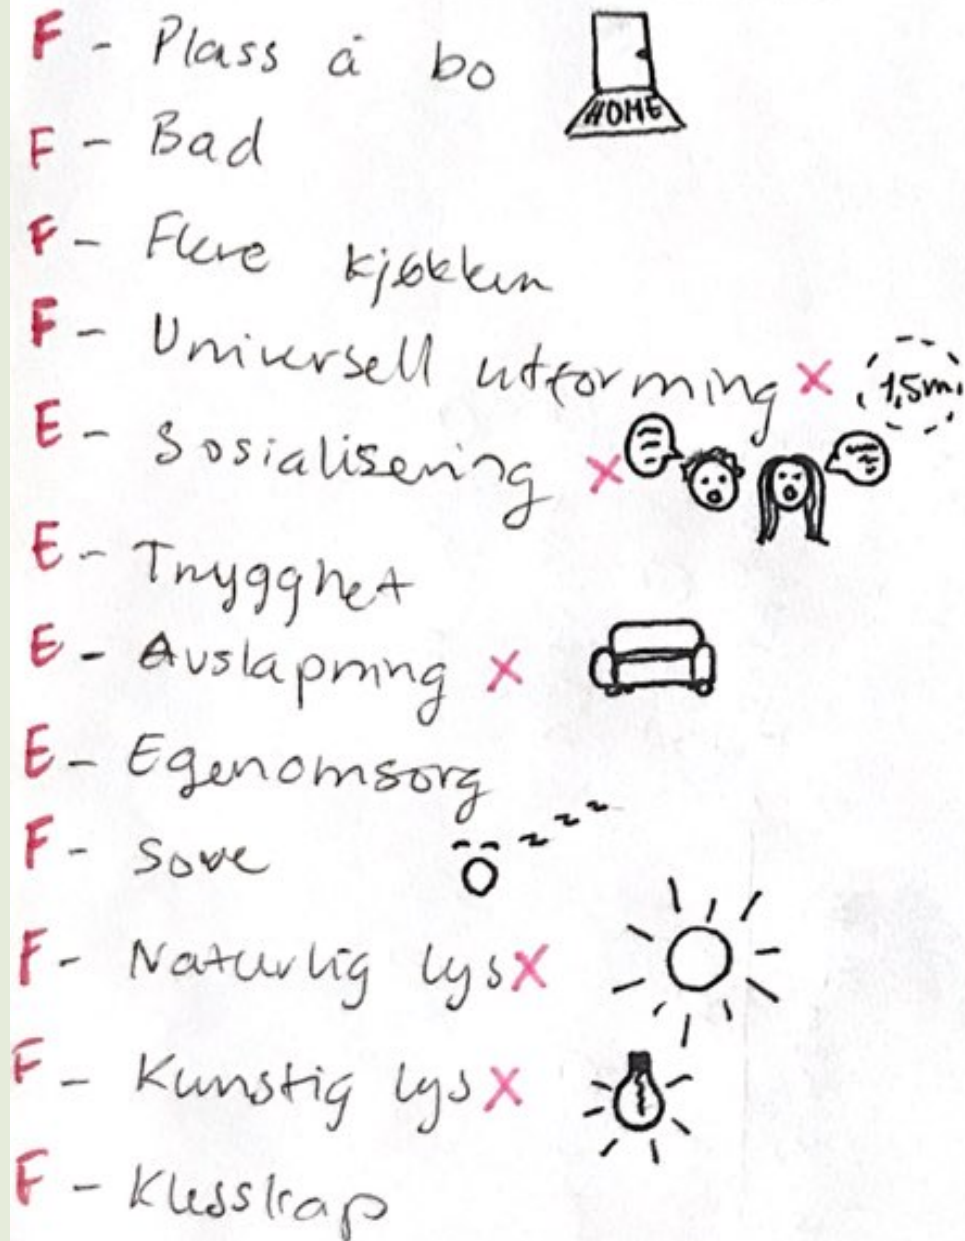 F - Plass å bo
HOME
F - Bad
F - Flere kjøkken
F - Universell utforming x 1,5m
E - Sosialisering x
E - Trygghet
E - Avslapning x
E - Egenomsorg
F - Sove
z z z z
F - Naturlig lys x
F - Kunstig lys x
F - Klesskap